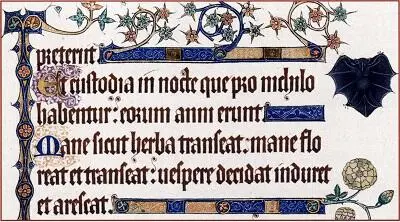 preteriit
Et custodia in nocte que pro nichilo
habentur: eorum anni erunt
Mane sicut herba transeat: mane flo
reat et transeat: uespere decidat induret
et arescat